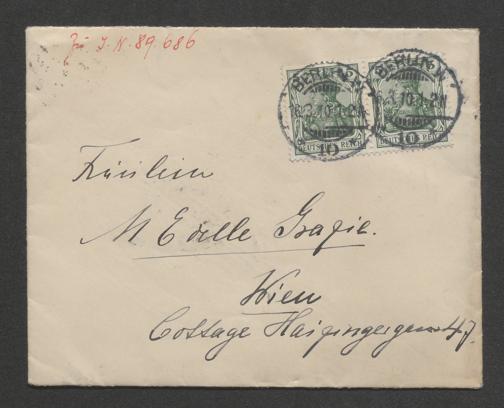 Zu I.N. 89.686
BERLIN N.
BERLIN N.
10
10
DEUTSCHES REICH
DEUTSCHES REICH
Fräulein
M E delle Grazie.
Wien
Cottage Haizingergasse 47.